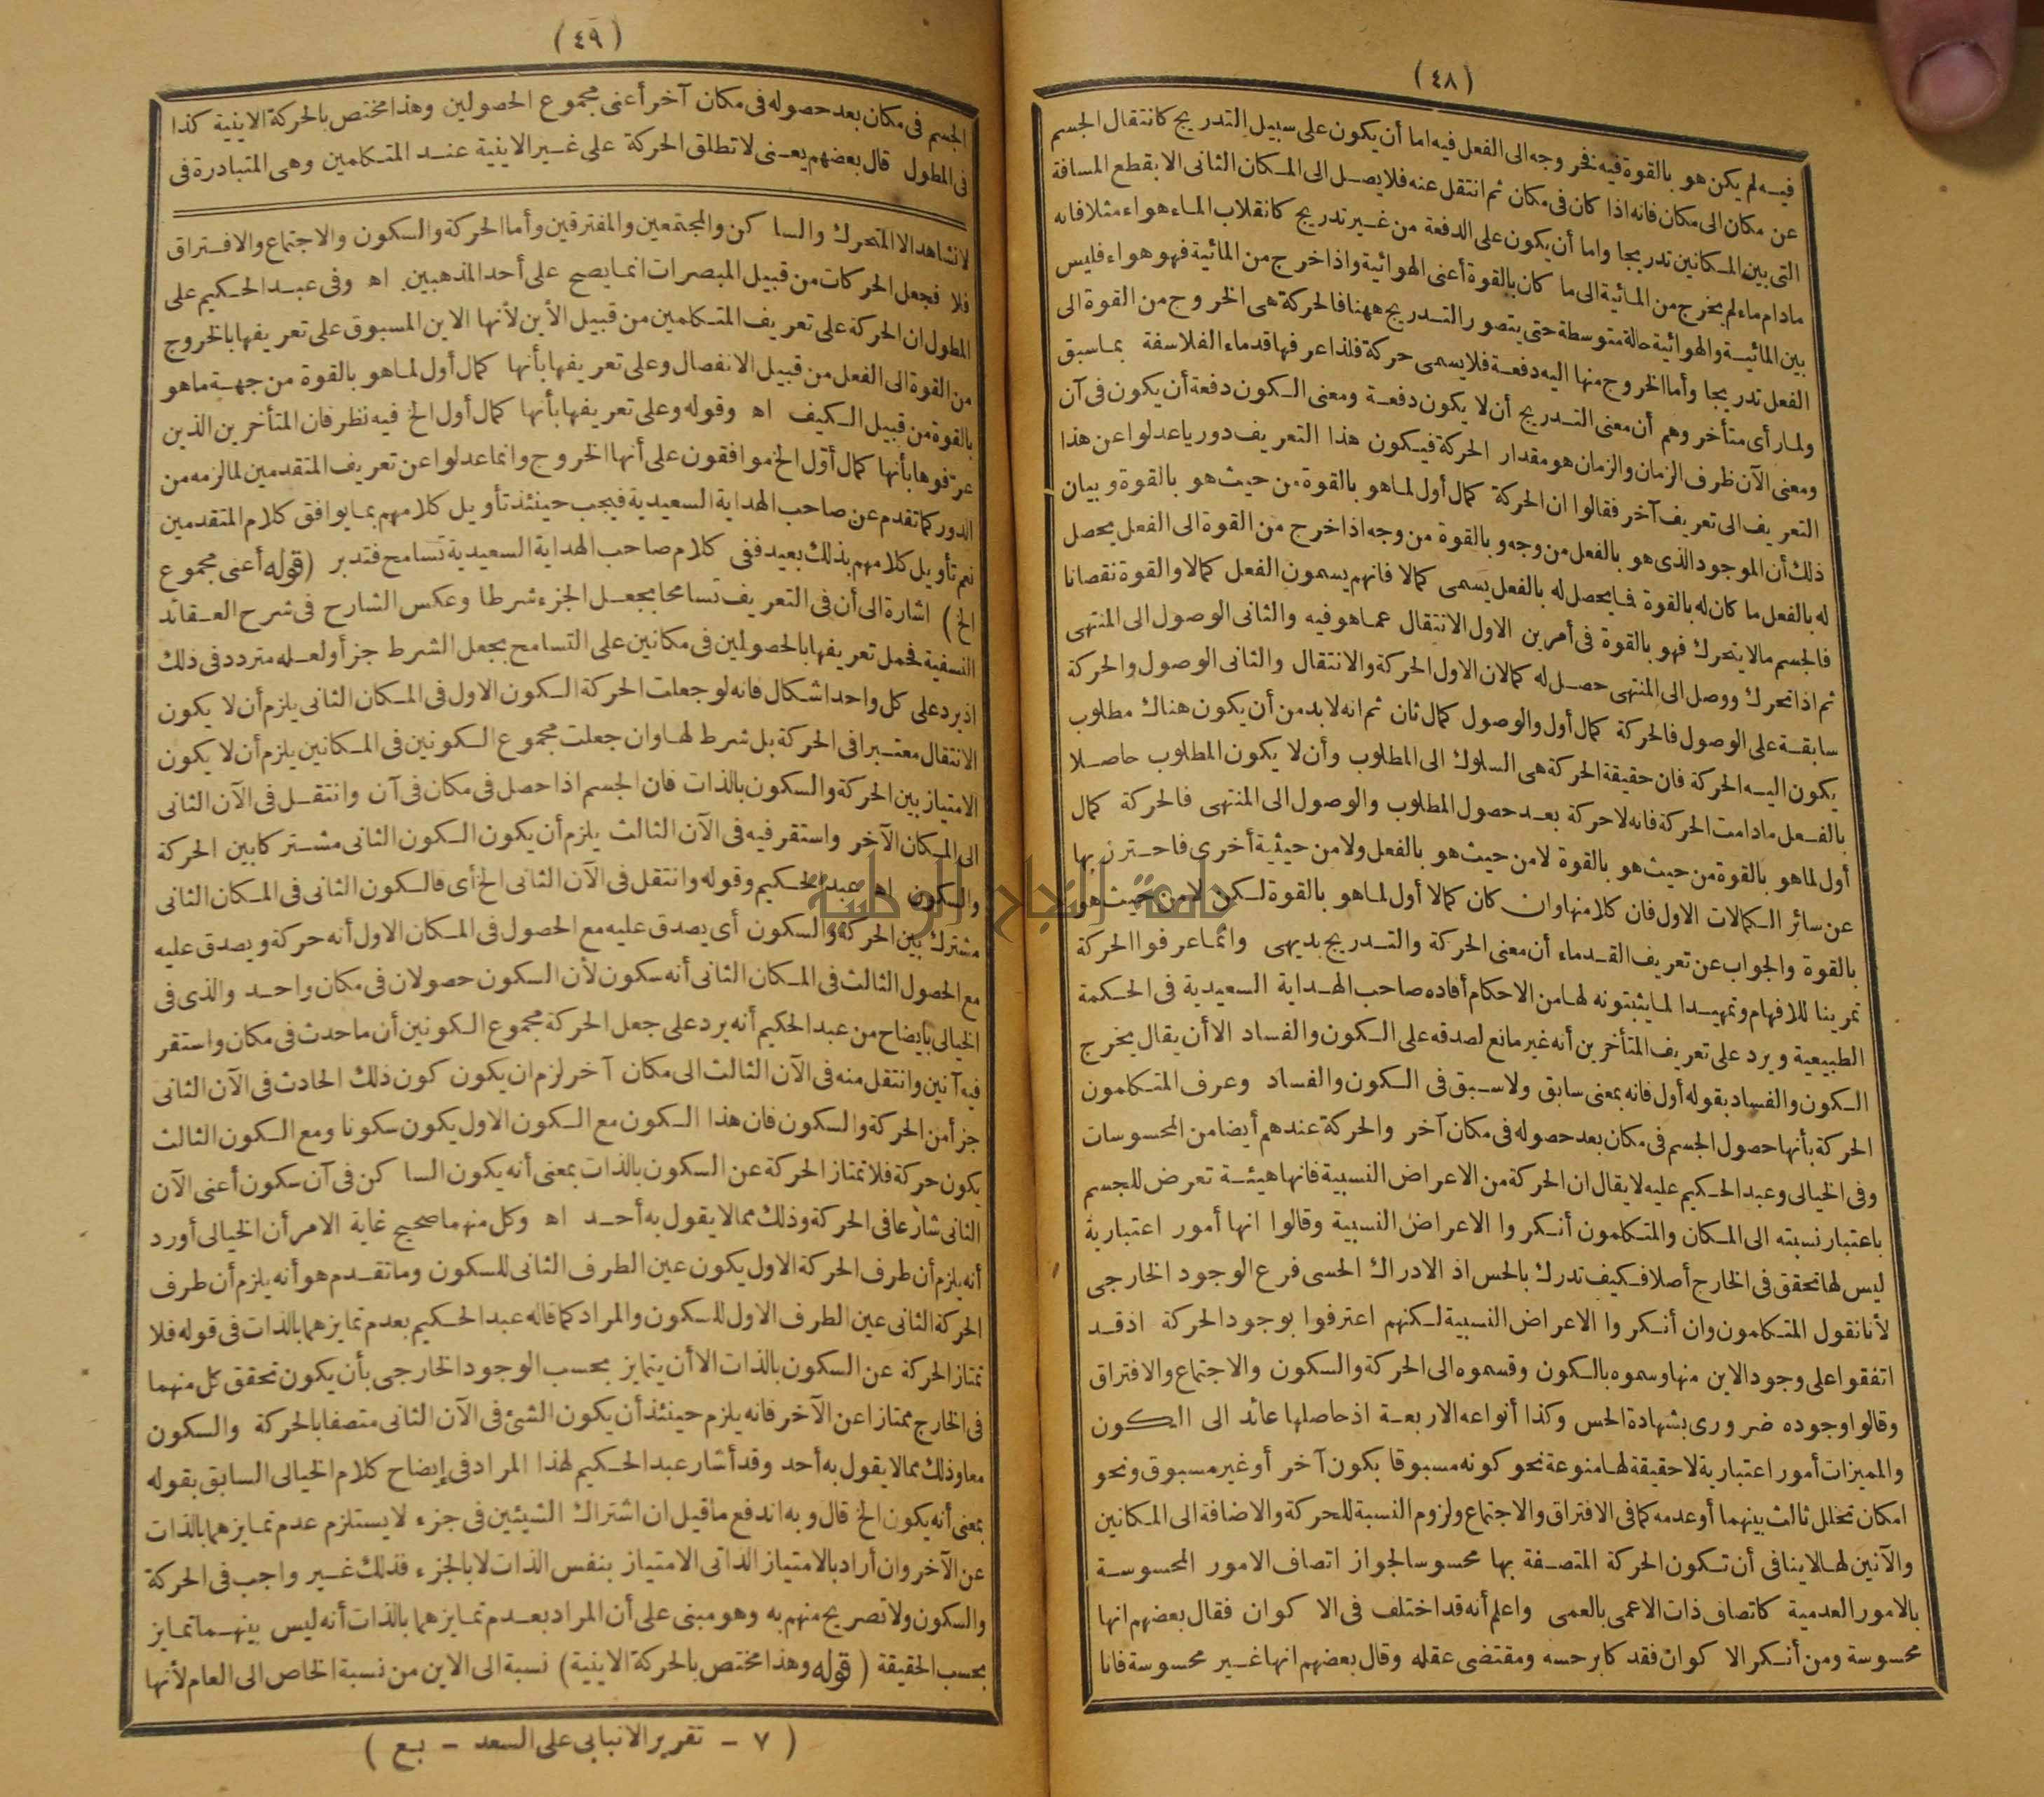 (٤٨)
فيه لم يكن هو بالقوة فيه فخروجه الى الفعل فيه اما أن يكون على سبيل التدريج كانتقال الجسم
عن مكان الى مكان فانه اذا كان فى مكان ثم انتقل عنه فلا يصل الى المكان الثانى الا بقطع المسافة
التى بين المكانين تدريجا واما أن يكون على الدفعة من غير تدريج كانقلاب الماء هواء مثلا فانه
مادام ماء لم يخرج من المائية الى ما كان بالقوة أعنى الهوائية واذا خرج من المائية فهو هواء فليس
بين المائية والهوائية حالة متوسطة حتى يتصور التدريج ههنا فالحركة هى الخروج من القوة الى
الفعل تدريجا وأما الخروج منها اليه دفعة فلا يسمى حركة فلذا عرفها قدماء الفلاسفة بما سبق
ولما رأى متأخروهم أن معنى التدريج أن لا يكون دفعة ومعنى الكون دفعة أن يكون فى آن
ومعنى الآن ظرف الزمان والزمان هو مقدار الحركة فيكون هذا التعريف دوريا عدلوا عن هذا
التعريف الى تعريف آخر فقالوا ان الحركة كمال أول لما هو بالقوة من حيث هو بالقوة وبيان
ذلك أن الموجود الذى هو بالفعل من وجه وبالقوة من وجه اذا خرج من القوة الى الفعل يحصل
له بالفعل ما كان له بالقوة فما يحصل له بالفعل يسمى كمالا فانهم يسمون الفعل كمالا والقوة نقصانا
فالجسم مالا يتحرك فهو بالقوة فى أمرين الاول الانتقال عما هو فيه والثانى الوصول الى المنتهى
ثم اذا تحرك ووصل الى المنتهى حصل له كمالان الاول الحركة والانتقال والثانى الوصول والحركة
سابقة على الوصول فالحركة كمال أول والوصول كمال ثان ثم انه لابد من أن يكون هناك مطلوب
يكون اليه الحركة فان حقيقة الحركة هى السلوك الى المطلوب وأن لا يكون المطلوب حاصلا
بالفعل مادامت الحركة فانه لا حركة بعد حصول المطلوب والوصول الى المنتهى فالحركة كمال
أول لما هو بالقوة من حيث هو بالقوة لا من حيث هو بالفعل ولا من حيثية أخرى فاحترز بها
عن سائر الكمالات الاول فان كلا منها وان كان كمالا أول لما هو بالقوة لكن لا من حيث هو
بالقوة والجواب عن تعريف القدماء أن معنى الحركة والتدريج بديهى وانما عرفوا الحركة
تمرينا للافهام وتمهيدا لما يثبتونه لها من الاحكام أفاده صاحب الهداية السعيدية فى الحكمة
الطبيعية ويرد على تعريف المتأخرين أنه غير مانع لصدقه على الكون والفساد الا أن يقال يخرج
الكون والفساد بقوله أول فانه بمعنى سابق ولا سبق فى الكون والفساد وعرف المتكلمون
الحركة بأنها حصول الجسم فى مكان بعد حصوله فى مكان آخر والحركة عندهم أيضا من المحسوسات
وفى الخيالى وعبد الحكيم عليه لا يقال ان الحركة من الاعراض النسبية فانها هيئة تعرض للجسم
باعتبار نسبته الى المكان والمتكلمون أنكروا الاعراض النسبية وقالوا انها أمور اعتبارية
ليس لها تحقق فى الخارج أصلا فكيف تدرك بالحس اذ الادراك الحسى فرع الوجود الخارجى
لأنا نقول المتكلمون وان أنكروا الاعراض النسبية لكنهم اعترفوا بوجود الحركة اذ قد
اتفقوا على وجود الاين منها وسموه بالكون وقسموه الى الحركة والسكون والاجتماع والافتراق
وقالوا وجوده ضرورى بشهادة الحس وكذا أنواعه الاربعة اذ حاصلها عائد الى الكون
والمميزات أمور اعتبارية لا حقيقة لها منوعة نحو كونه مسبوقا بكون آخر أو غير مسبوق ونحو
امكان تخلل ثالث بينهما أو عدمه كما فى الافتراق والاجتماع ولزوم النسبة للحركة والاضافة الى المكانين
والآنين لها لا ينافى أن تكون الحركة المتصفة بها محسوسا لجواز اتصاف الامور المحسوسة
بالامور العدمية كاتصاف ذات الاعمى بالعمى واعلم أنه قد اختلف فى الا كوان فقال بعضهم انها
محسوسة ومن أنكر الا كوان فقد كابر حسه ومقتضى عقله وقال بعضهم انها غير محسوسة فانا
(٤٩)
الجسم فى مكان بعد حصوله فى مكان آخر أعنى مجموع الحصولين وهذا مختص بالحركة الاينية كذا
فى المطول قال بعضهم يعنى لا تطلق الحركة على غير الاينية عند المتكلمين وهى المتبادرة فى
لا نشاهد الا المتحرك والسا كن والمجتمعين والمفترقين وأما الحركة والسكون والاجتماع والافتراق
فلا فجعل الحركات من قبيل المبصرات انما يصح على أحد المذهبين اه وفى عبد الحكيم على
المطول ان الحركة على تعريف المتكلمين من قبيل الأين لأنها الاين المسبوق على تعريفها بالخروج
من القوة الى الفعل من قبيل الانفصال وعلى تعريفها بأنها كمال أول لما هو بالقوة من جهة ما هو
بالقوة من قبيل الكيف اه وقوله وعلى تعريفها بأنها كمال أول الخ فيه نظر فان المتأخرين الذين
عرفوها بأنها كمال أول الخ موافقون على أنها الخروج وانما عدلوا عن تعريف المتقدمين لما لزمه من
الدور كما تقدم عن صاحب الهداية السعيدية فيجب حينئذ تأويل كلامهم بما يوافق كلام المتقدمين
نعم تأويل كلامهم بذلك بعيد ففى كلام صاحب الهداية السعيدية تسامح فتدبر (قوله أعنى مجموع
الخ) اشارة الى أن فى التعريف تسامحا بجعل الجزء شرطا وعكس الشارح فى شرح العقائد
النسفية فحمل تعريفها بالحصولين فى مكانين على التسامح بجعل الشرط جزأ ولعله متردد فى ذلك
اذ يرد على كل واحد اشكال فانه لو جعلت الحركة الكون الاول فى المكان الثانى يلزم أن لا يكون
الانتقال معتبرا فى الحركة بل شرط لها وان جعلت مجموع الكونين فى المكانين يلزم أن لا يكون
الامتياز بين الحركة والسكون بالذات فان الجسم اذا حصل فى مكان فى آن وانتقل فى الآن الثانى
الى المكان الآخر واستقر فيه فى الآن الثالث يلزم أن يكون الكون الثانى مشتركا بين الحركة
والسكون اه عبد الحكيم وقوله وانتقل فى الآن الثانى الخ أى فالكون الثانى فى المكان الثانى
مشترك بين الحركة والسكون أى يصدق عليه مع الحصول فى المكان الاول أنه حركة ويصدق عليه
مع الحصول الثالث فى المكان الثانى أنه سكون لأن السكون حصولان فى مكان واحد والذى فى
الخيالى بايضاح من عبد الحكيم أنه يرد على جعل الحركة مجموع الكونين أن ما حدث فى مكان واستقر
فيه آنين وانتقل منه فى الآن الثالث الى مكان آخر لزم ان يكون كون ذلك الحادث فى الآن الثانى
جزأ من الحركة والسكون فان هذا الكون مع الكون الاول يكون سكونا ومع الكون الثالث
يكون حركة فلا تمتاز الحركة عن السكون بالذات بمعنى أنه يكون السا كن فى آن سكون أعنى الآن
الثانى شارعا فى الحركة وذلك مما لا يقول به أحد اه وكل منهما صحيح غاية الامر أن الخيالى أورد
أنه يلزم أن طرف الحركة الاول يكون عين الطرف الثانى للسكون وما تقدم هو أنه يلزم أن طرف
الحركة الثانى عين الطرف الاول للسكون والمراد كما قاله عبد الحكيم بعدم تمايزهما بالذات فى قوله فلا
تمتاز الحركة عن السكون بالذات الا أن يتمايز بحسب الوجود الخارجى بأن يكون تحقق كل منهما
فى الخارج ممتازا عن الآخر فانه يلزم حينئذ أن يكون الشئ فى الآن الثانى متصفا بالحركة والسكون
معا وذلك مما لا يقول به أحد وقد أشار عبد الحكيم لهذا المراد فى إيضاح كلام الخيالى السابق بقوله
بمعنى أنه يكون الخ قال وبه اندفع ما قيل ان اشتراك الشيئين فى جزء لا يستلزم عدم تمايزهما بالذات
عن الآخر وان أراد بالامتياز الذاتى الامتياز بنفس الذات لا بالجزء فذلك غير واجب فى الحركة
والسكون ولا تصريح منهم به وهو مبنى على أن المراد بعدم تمايزهما بالذات أنه ليس بينهما تمايز
بحسب الحقيقة (قوله وهذا مختص بالحركة الاينية) نسبة الى الاين من نسبة الخاص الى العام لأنها
(٧ - تقرير الانبابى على السعد - بع)
جامعة النجاح الوطنية